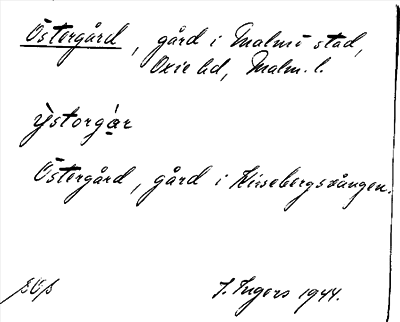 Östergård, gård i Malmö stad,
Oxie hd, Malm. l.
ỳstorgár
Östergård, gård i Kirsebergsvången.
I. Ingers 1944.